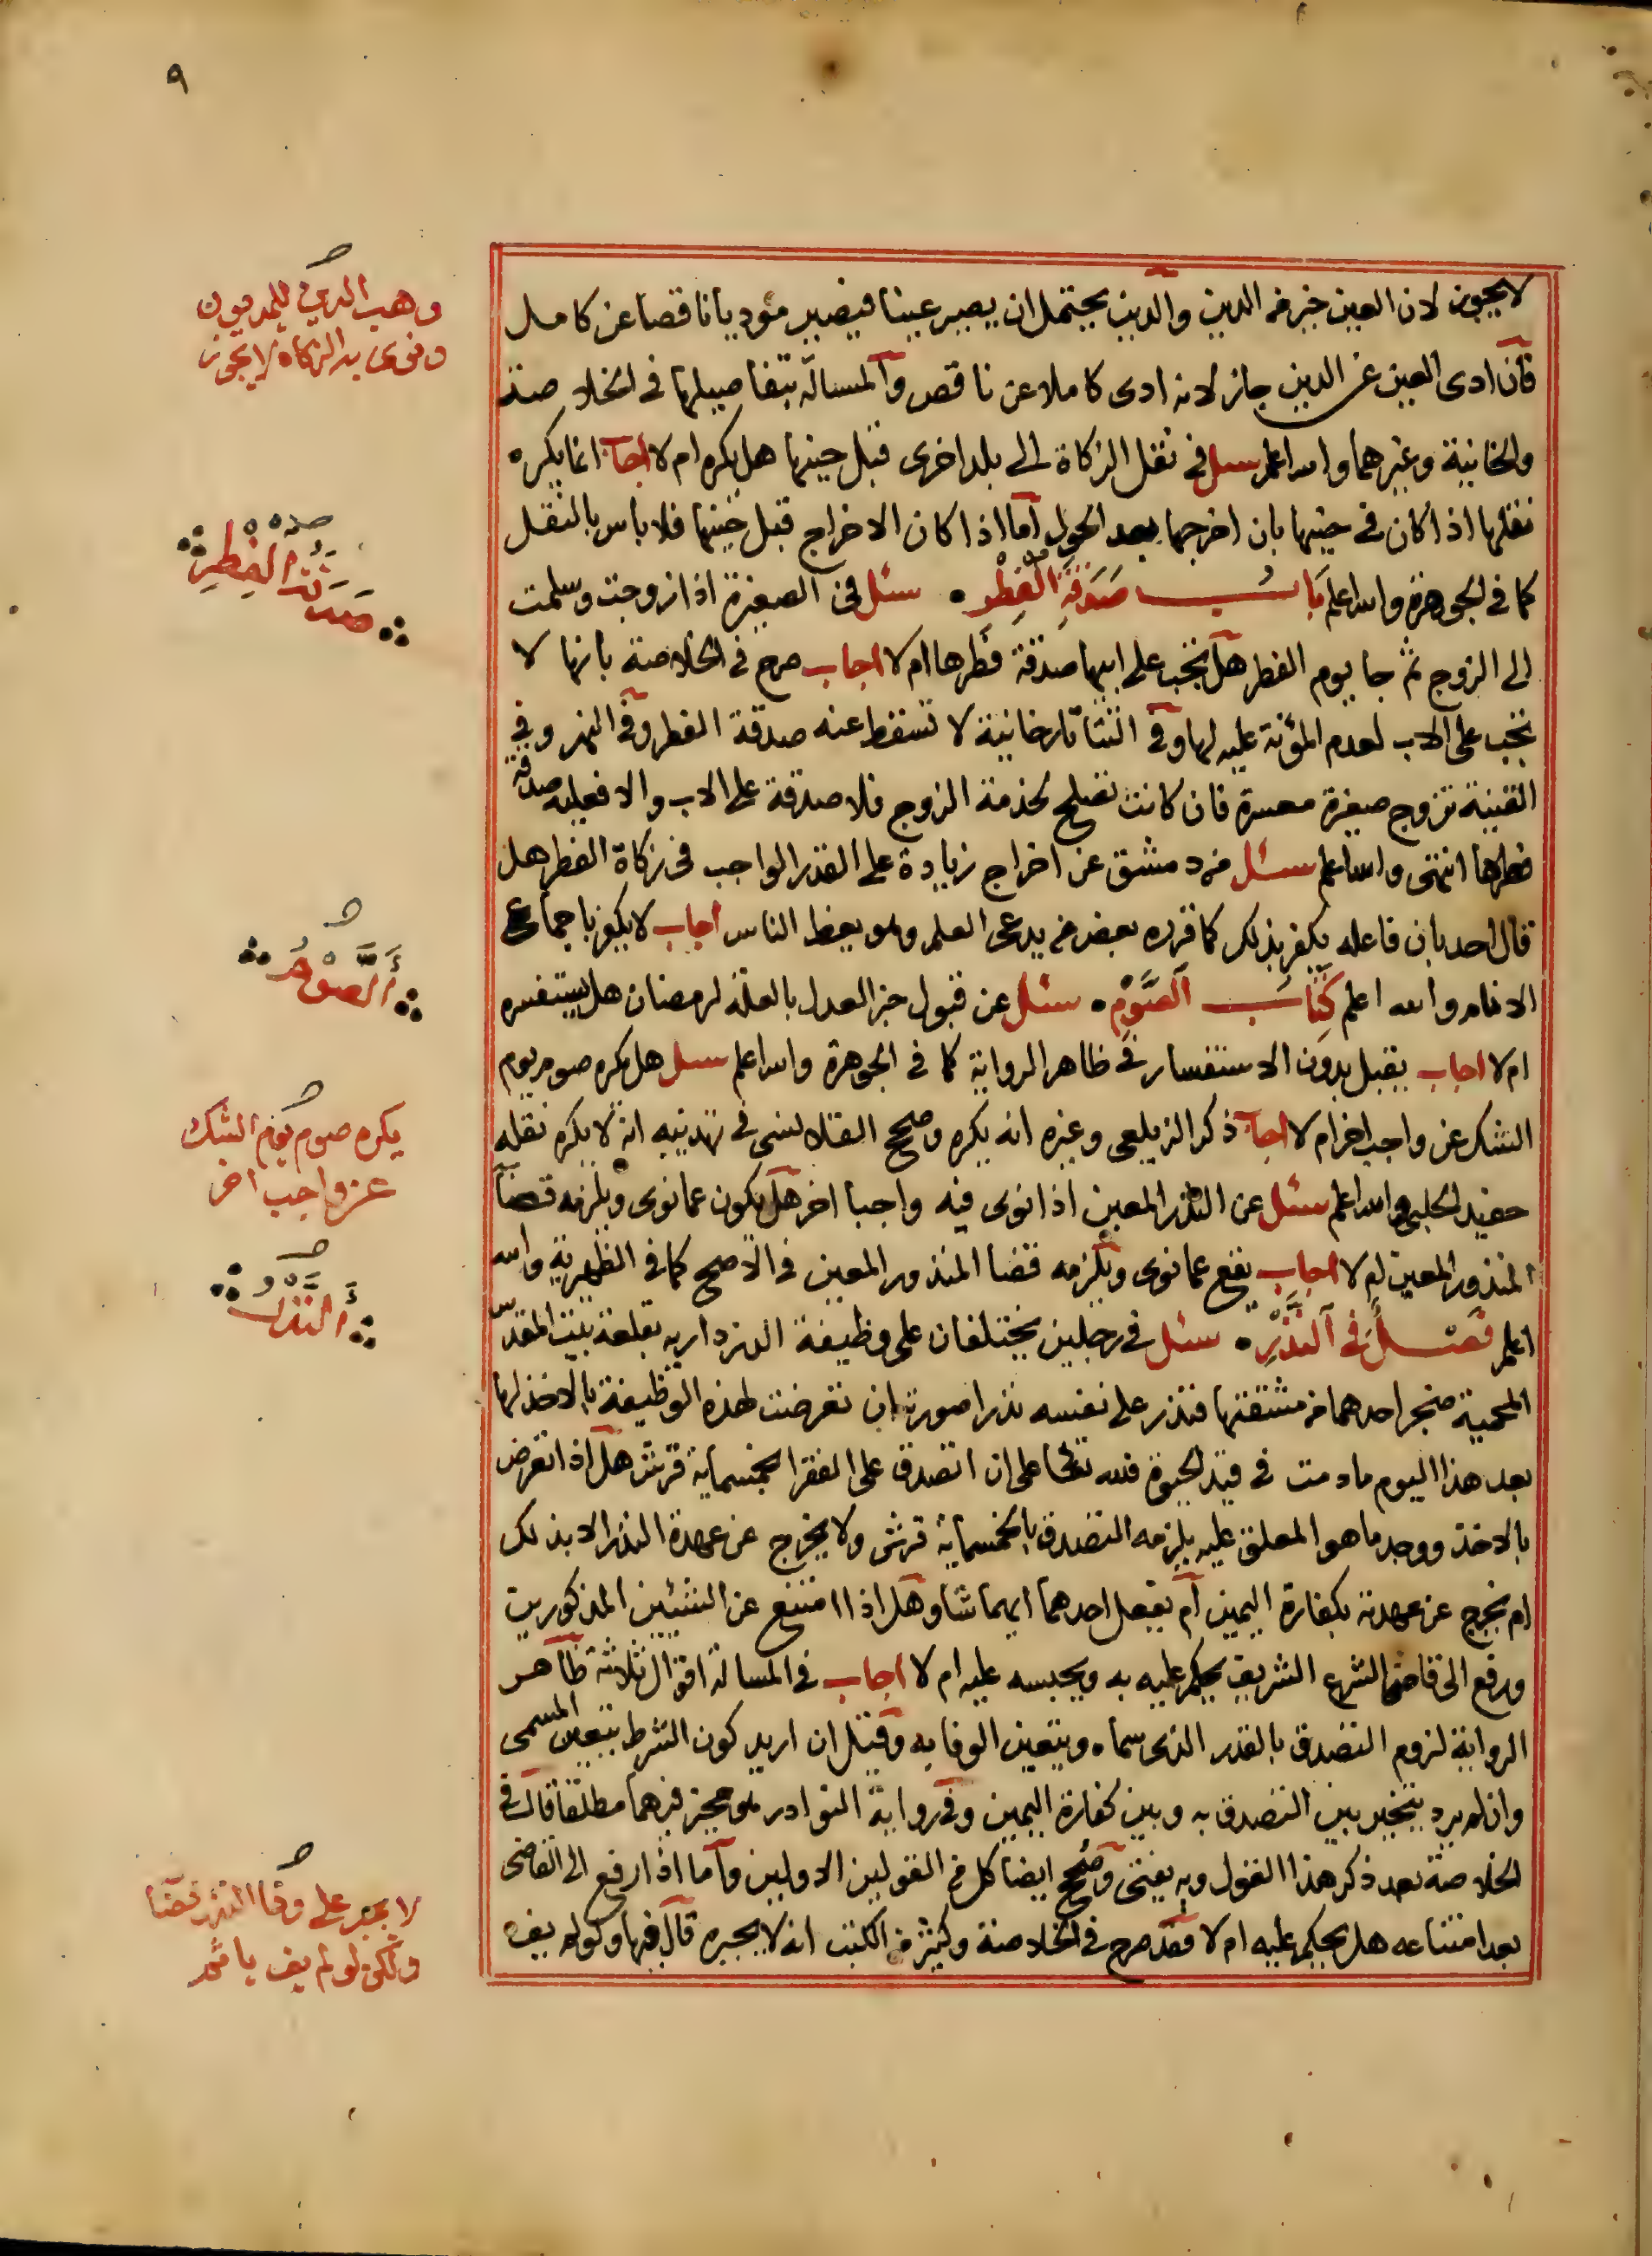 ٩
لا يجوز لان العين خير من الدين والدين يحتمل ان يصير عينا فيصير مؤديا ناقصا عن كامل
فان ادى العين عن الدين جاز لانه ادى كاملا عن ناقص والمسالة بتفاصيلها فى الخلاصة
والخانية وغيرهما والله اعلم سئل فى نقل الزكاة الى بلد اخرى قبل حينها هل يكره ام لا اجاب انما يكره
نقلها اذا كان فى حينها بان اخرجها بعد الحول اما اذا كان الاخراج قبل حينها فلا باس بالنقل
كما فى الجوهرة والله اعلم بَابُ صَدَقَةِ الْفِطْرِ سئل فى الصغيرة اذا زوجت وسلمت
الى الزوج ثم جا يوم الفطر هل تجب على ابيها صدقة فطرها ام لا اجاب صرح فى الخلاصة بانها لا
تجب على الاب لعدم المؤنة عليه لها وفى التتاتارخانية لا تسقط عنه صدقة الفطر وفى النهر وفى
القنية تزوج صغيرة معسرة فان كانت تصلح لخدمة الزوج فلا صدقة على الاب والا فعليه صدقة
فطرها انتهى والله اعلم سئل من دمشق عن اخراج زيادة على القدر الواجب فى زكاة الفطر هل
قال احد بان فاعله يكفر بذلك كما قرره بعض من يدعى العلم وهو يعظ الناس اجاب لا يكفر باجماع
الانام والله اعلم كِتَاب الصَّوْمِ سئل عن قبول خبر العدل بالعلة لرمضان هل يستفسره
ام لا اجاب يقبل بدون الاستفسار فى ظاهر الرواية كما فى الجوهرة والله اعلم سئل هل يكره صوم يوم
الشك عن واجب اخر ام لا اجاب ذكر الزيلعى وغيره انه يكره وصحح القلانسى فى تهذيبه انه لا يكره نقله
حفيد الحلبى والله اعلم سئل عن النذر المعين اذا نوى فيه واجبا اخر هل يكون عما نوى ويلزمه قضا
المنذور المعين ام لا اجاب يقع عما نوى ويلزمه قضا المنذور المعين فى الاصح كما فى الظهيرية والله
اعلم فَصْلٌ فى النَّذْرِ سئل فى رجلين يختلفان على وظيفة الدزدارية بقلعة بيت المقدس
المحمية فضجر احدهما من مشقتها فنذر على نفسه نذرا صورته ان تعرضت لهذه الوظيفة بالاخذ لها
بعد هذا اليوم ما دمت فى قيد الحيوة فلله تعالى على ان اتصدق على الفقرا بخمسماية قرش هل اذا تعرض
بالاخذ ووجد ما هو المعلق عليه يلزمه التصدق بالخمسماية قرش ولا يخرج عن عهدة النذر الا بذلك
ام يخرج عن عهدته بكفارة اليمين ام يفعل احدهما ايهما شا وهل اذا امتنع عن الشيئين المذكورين
ورفع الى قاضى الشرع الشريف يحكم عليه به ويحبسه عليه ام لا اجاب فى المسالة اقوال ثلاثة ظاهر
الرواية لزوم التصدق بالقدر الذى سماه ويتعين الوفا به وقيل ان اريد كون الشرط يتعين المسمى
وان لم يرد يتخير بين التصدق به وبين كفارة اليمين وفى رواية النوادر هو مخير فيهما مطلقا قال فى
الخلاصة بعد ذكر هذا القول وبه يفتى وصحح ايضا كل من القولين الاولين واما اذا رفع الى القاضى
بعد امتناعه هل يحكم عليه ام لا فقد صرح فى الخلاصة وكثير من الكتب انه لا يجبره قال فيها ولو لم يف
وهب الدين للمديون
ونوى به الزكاة لا يجوز
صَدَقَةُ الْفِطْرِ
أَلصَّوْمُ
يكره صوم يوم الشك
عن واجب اخر
أَلنَّذْرُ
لا يجبر على وفا النذر قضا
ولكن لو لم يف ياثم